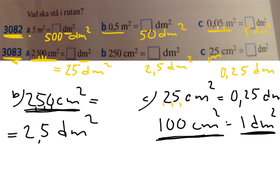 Vad ska stå i rutan?
3082 a 5 m² = □ dm² b 0,5 m² = □ dm² c 0,05 m² = □ dm²
500 dm² 50 dm² 5 dm²
3083 a 2 500 cm² = □ dm² b 250 cm² = □ dm² c 25 cm² = □ dm²
= 25 dm² 2,5 dm² 0,25 dm²
b) 250 cm² = c) 25 cm² = 0,25 dm
= 2,5 dm² 100 cm² = 1 dm²